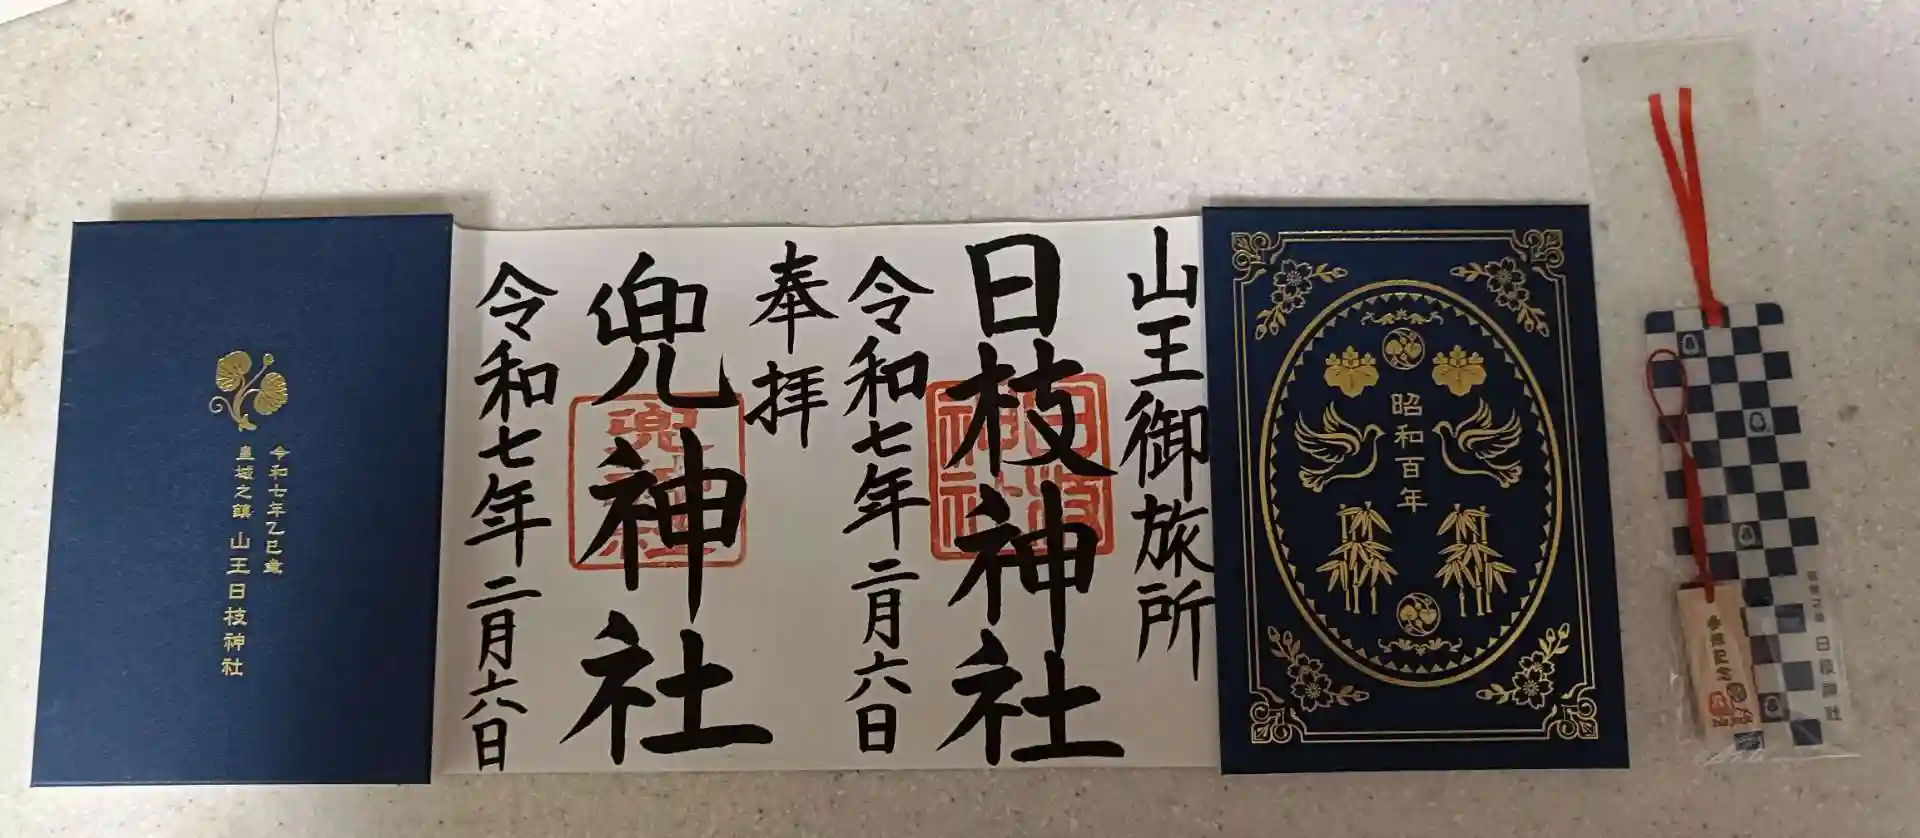 令和七年乙巳歳
皇城之鎮 山王日枝神社
奉拝
兜神社
兜神社
令和七年二月六日
山王御旅所
日枝神社
日枝神社
令和七年二月六日
昭和百年
皇城之鎮 日枝神社
参拝記念